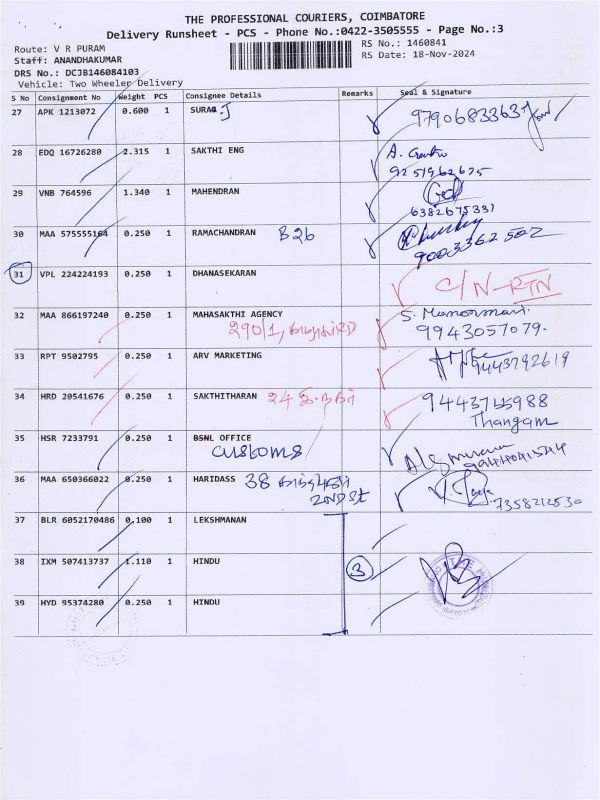 THE PROFESSIONAL COURIERS, COIMBATORE
Delivery Runsheet - PCS - Phone No.:0422-3505555 - Page No.:3
Route: V R PURAM RS No.: 1460841
Staff: ANANDHAKUMAR RS Date: 18-Nov-2024
DRS No.: DCJB146084103
Vehicle: Two Wheeler Delivery
S No Consignment No Weight PCS Consignee Details Remarks Seal & Signature
27 APK 1213072 0.600 1 SURAJ 9790683363
28 EDQ 16726280 2.315 1 SAKTHI ENG
9251962675
29 VNB 764596 1.340 1 MAHENDRAN
6382675331
30 MAA 575555164 0.250 1 RAMACHANDRAN B26
9003362502
31 VPL 224224193 0.250 1 DHANASEKARAN C/N-RTN
32 MAA 866197240 0.250 1 MAHASAKTHI AGENCY S. Manormani.
290/1, 9943057079.
33 RPT 9502795 0.250 1 ARV MARKETING 9443792619
34 HRD 20541676 0.250 1 SAKTHITHARAN 24 9443745988
Thangam
35 HSR 7233791 0.250 1 BSNL OFFICE
CUSTOMS
36 MAA 650366022 0.250 1 HARIDASS 38
2ND St 7358212530
37 BLR 6052170486 0.100 1 LEKSHMANAN
38 IXM 507413737 1.110 1 HINDU 3
39 HYD 95374280 0.250 1 HINDU